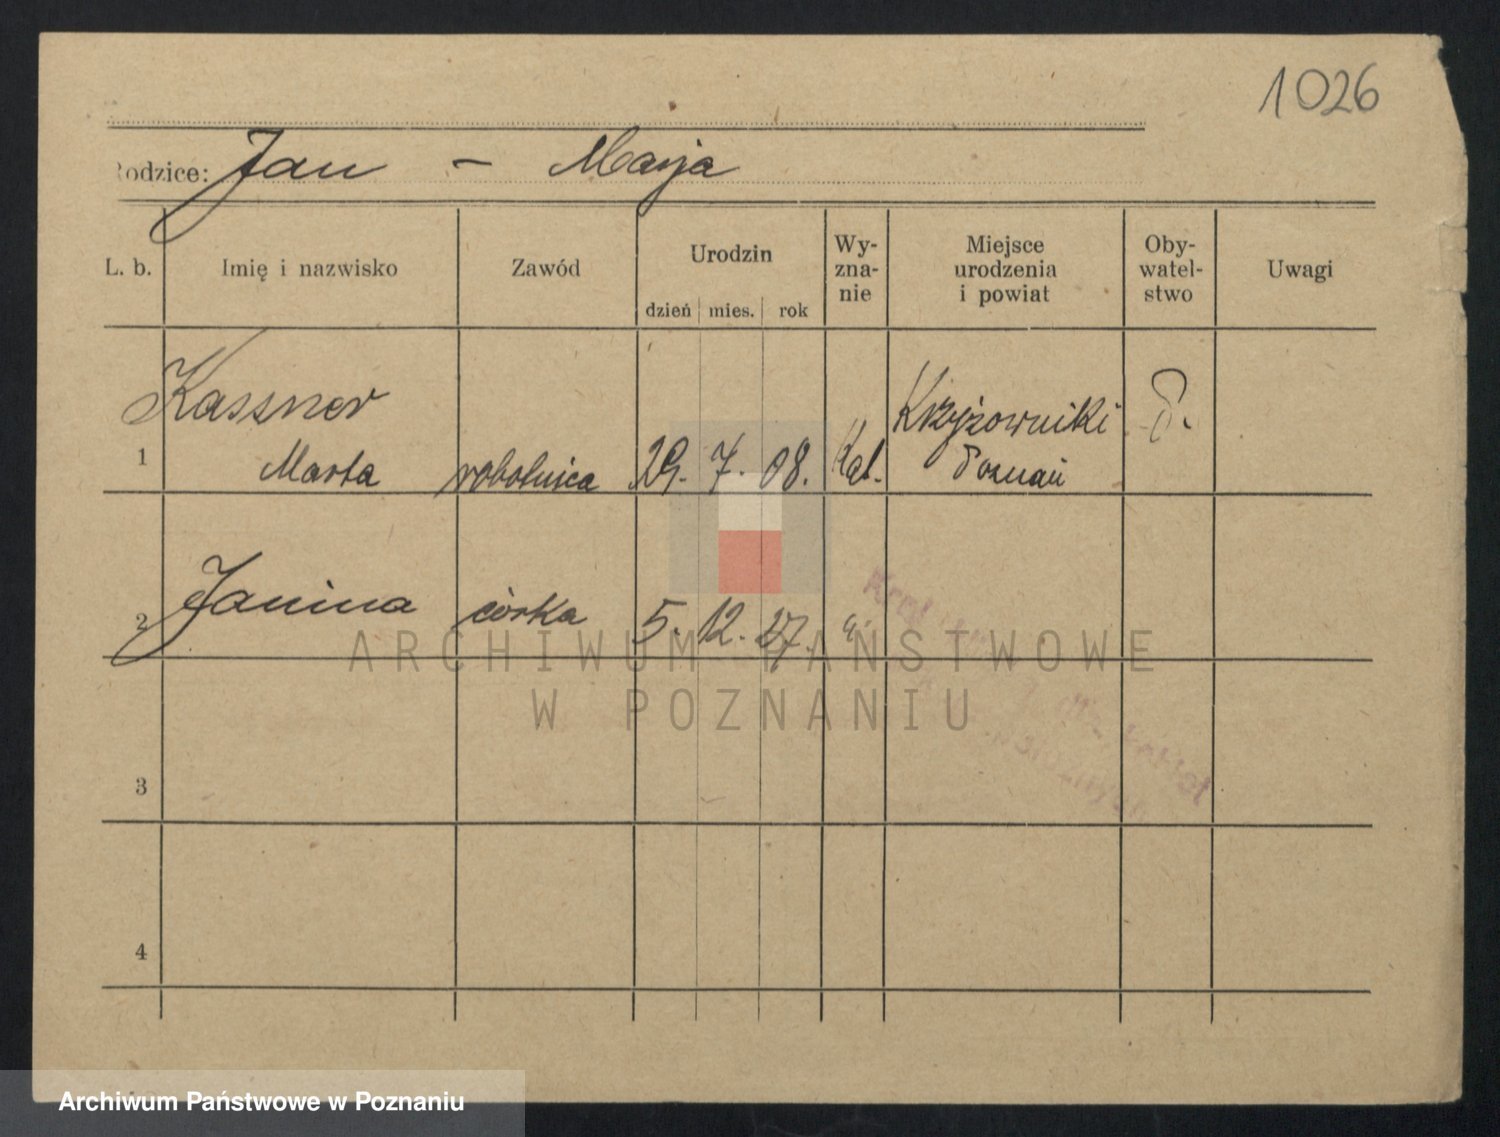 1026
Rodzice: Jan – Marja
L. b. Imię i nazwisko Zawód Urodzin dzień mies. rok Wy-zna-nie Miejsce urodzenia i powiat Oby-watel-stwo Uwagi
Kassner Krzyżowniki
1 Marta robotnica 29. 7. 08. Kat. Poznań
2 Janina córka 5. 12. 27.
ARCHIWUM PAŃSTWOWE
W POZNANIU
3
4
Archiwum Państwowe w Poznaniu